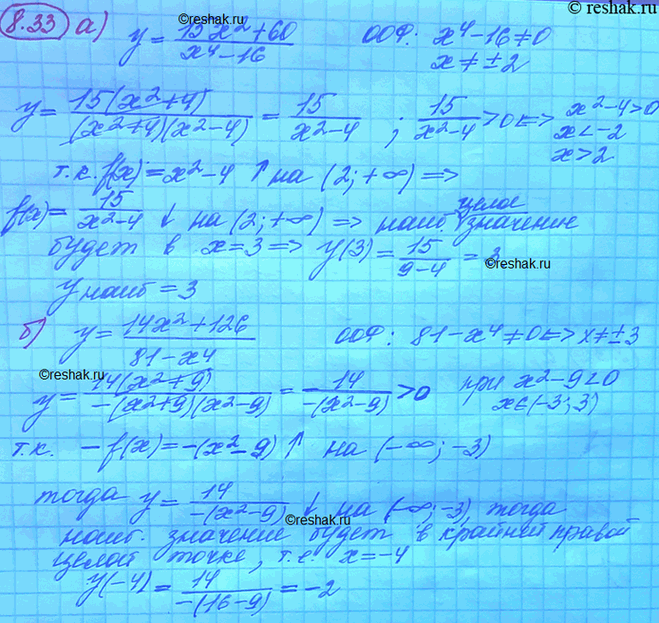 © reshak.ru
8.33 а) y = (15x²+60)/(x⁴-16) ООФ: x⁴-16≠0
x≠±2
y = 15(x²+4)/((x²+4)(x²-4)) = 15/(x²-4) ; 15/(x²-4) >0 <=> x²-4>0
x<-2
x>2
т.к. f(x) = x²-4 ↑ на (2; +∞) =>
f(x) = 15/(x²-4) ↓ на (2; +∞) => наиб. целое значение
будет в x=3 => y(3) = 15/(9-4) = 3
© reshak.ru
y наиб = 3
б) y = (14x²+126)/(81-x4) ООФ: 81-x⁴≠0 <=> x≠±3
© reshak.ru
y = 14(x²+9)/(-(x²+9)(x²-9)) = 14/(-(x²-9)) >0 при x²-9<0
x∈(-3; 3)
т.к. -f(x) = -(x²-9) ↑ на (-∞; -3)
тогда y = 14/(-(x²-9)) ↓ на (-∞; -3), тогда
© reshak.ru
наиб. значение будет в крайней правой
целой точке, т.е. x=-4
y(-4) = 14/(-(16-9)) = -2